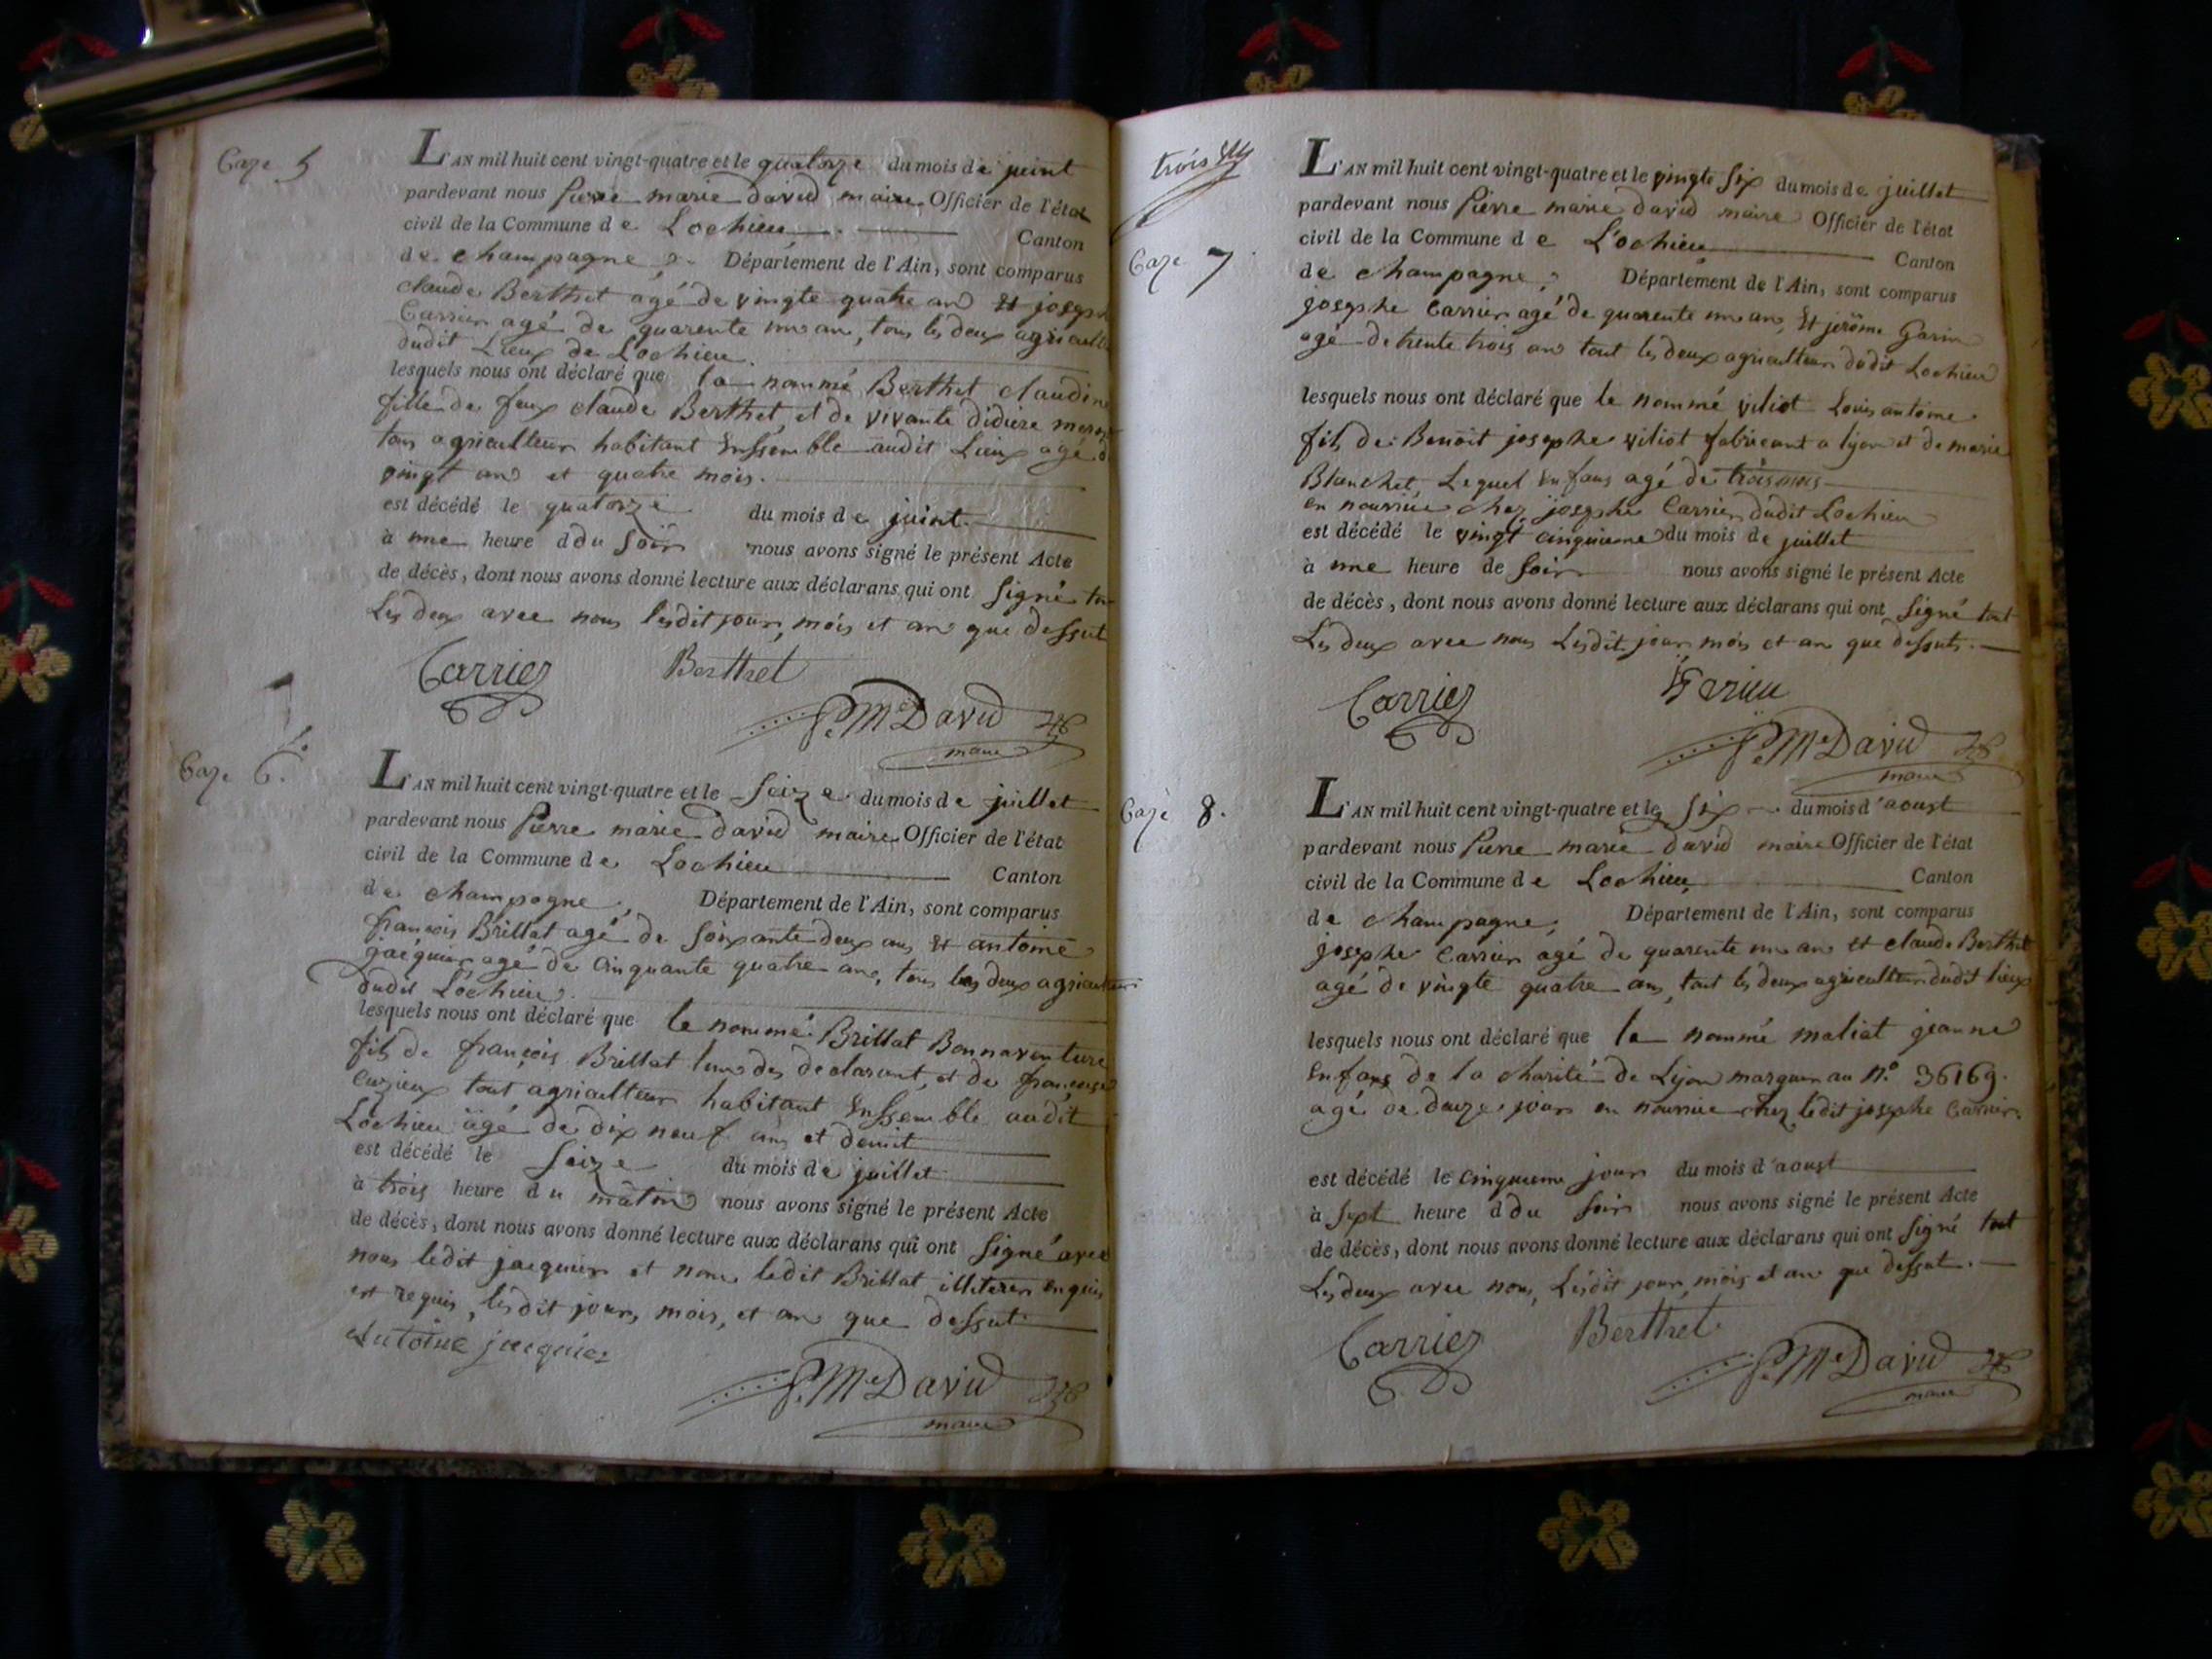 Caze 5
L'AN mil huit cent vingt-quatre et le quatorze du mois de juint
pardevant nous Pierre marie david maire Officier de l'état
civil de la Commune de Lochieu Canton
de champagne, Département de l'Ain, sont comparus
claude Berthet agé de vingte quatre ans Et joseph
Carrier agé de quarente un an, tous les deux agricult
dudit Lieux de Lochieu.
lesquels nous ont déclaré que la nommé Berthet claudine
fille de feux claude Berthet, et de vivante didiere
tous agriculteur habitant Enssemble audit Lieux agé d
vingt ans et quatre mois.
est décédé le quatorze du mois de juint.
à une heure d du Soir nous avons signé le présent Acte
de décès, dont nous avons donné lecture aux déclarans qui ont Signé
Les deux avec nous lesdit jour, mois et an que dessut
Carrier Berthet
P. Me David
maire
Caze 6.
L'AN mil huit cent vingt-quatre et le Seize du mois de juillet
pardevant nous Pierre marie david maire Officier de l'état
civil de la Commune de Lochieu Canton
de champagne, Département de l'Ain, sont comparus
françois Brillat agé de Soixante deux ans Et antoine
jacquier agé de Cinquante quatre ans, tous les deux agriculteur
dudit Lochieu.
lesquels nous ont déclaré que le nommé Brillat Bonnaventure
fils de françois Brillat lun des declarant, et de françoise
Cuzieux tout agriculteur habitant Enssemble audit
Lochieu agé de dix neuf ans et demit
est décédé le Seize du mois de juillet
à trois heure du matin nous avons signé le présent Acte
de décès, dont nous avons donné lecture aux déclarans qui ont Signé avec
nous ledit jacquier et non ledit Brillat illiterer enquis
et requis, lesdit jour, mois, et an que dessut
Antoine jacquier
P. Me David
maire
trois
Caze 7
L'AN mil huit cent vingt-quatre et le vingte Six du mois de juillet
pardevant nous Pierre marie david maire Officier de l'état
civil de la Commune de Lochieu Canton
de champagne, Département de l'Ain, sont comparus
josephe Carrier agé de quarente un an, Et jerôme Garin
agé de trente trois ans tout les deux agriculteur dudit Lochieu
lesquels nous ont déclaré que le nommé viliot Louis antoine
fils de Benoit josephe viliot fabricant a lyon et de marie
Blanchet, Lequel Enfans agé de trois mois
en nourrice chez josephe Carrier dudit Lochieu
est décédé le vingt cinquieme du mois de juillet
à une heure de Soir nous avons signé le présent Acte
de décès, dont nous avons donné lecture aux déclarans qui ont Signé tout
Les deux avec nous Lesdit jour, mois et an que dessuts.
Carrier
P. Me David
maire
Caze 8.
L'AN mil huit cent vingt-quatre et le Six du mois d'aoust
pardevant nous Pierre marie david maire Officier de l'état
civil de la Commune de Lochieu Canton
de champagne, Département de l'Ain, sont comparus
josephe Carrier agé de quarente un an et claude Berthet
agé de vingte quatre ans, tout les deux agriculteur dudit lieux
lesquels nous ont déclaré que la nommé maliat jeanne
Enfans de la charité de Lyon marquer au N.º 36169.
agé de douze jour en nourrice chez ledit josephe Carrier.
est décédé le cinquieme jour du mois d'aoust
à Sept heure d du Soir nous avons signé le présent Acte
de décès, dont nous avons donné lecture aux déclarans qui ont Signé tout
Les deux avec nous, Lesdit jour, mois et an que dessut.
Carrier Berthet
P. Me David
maire